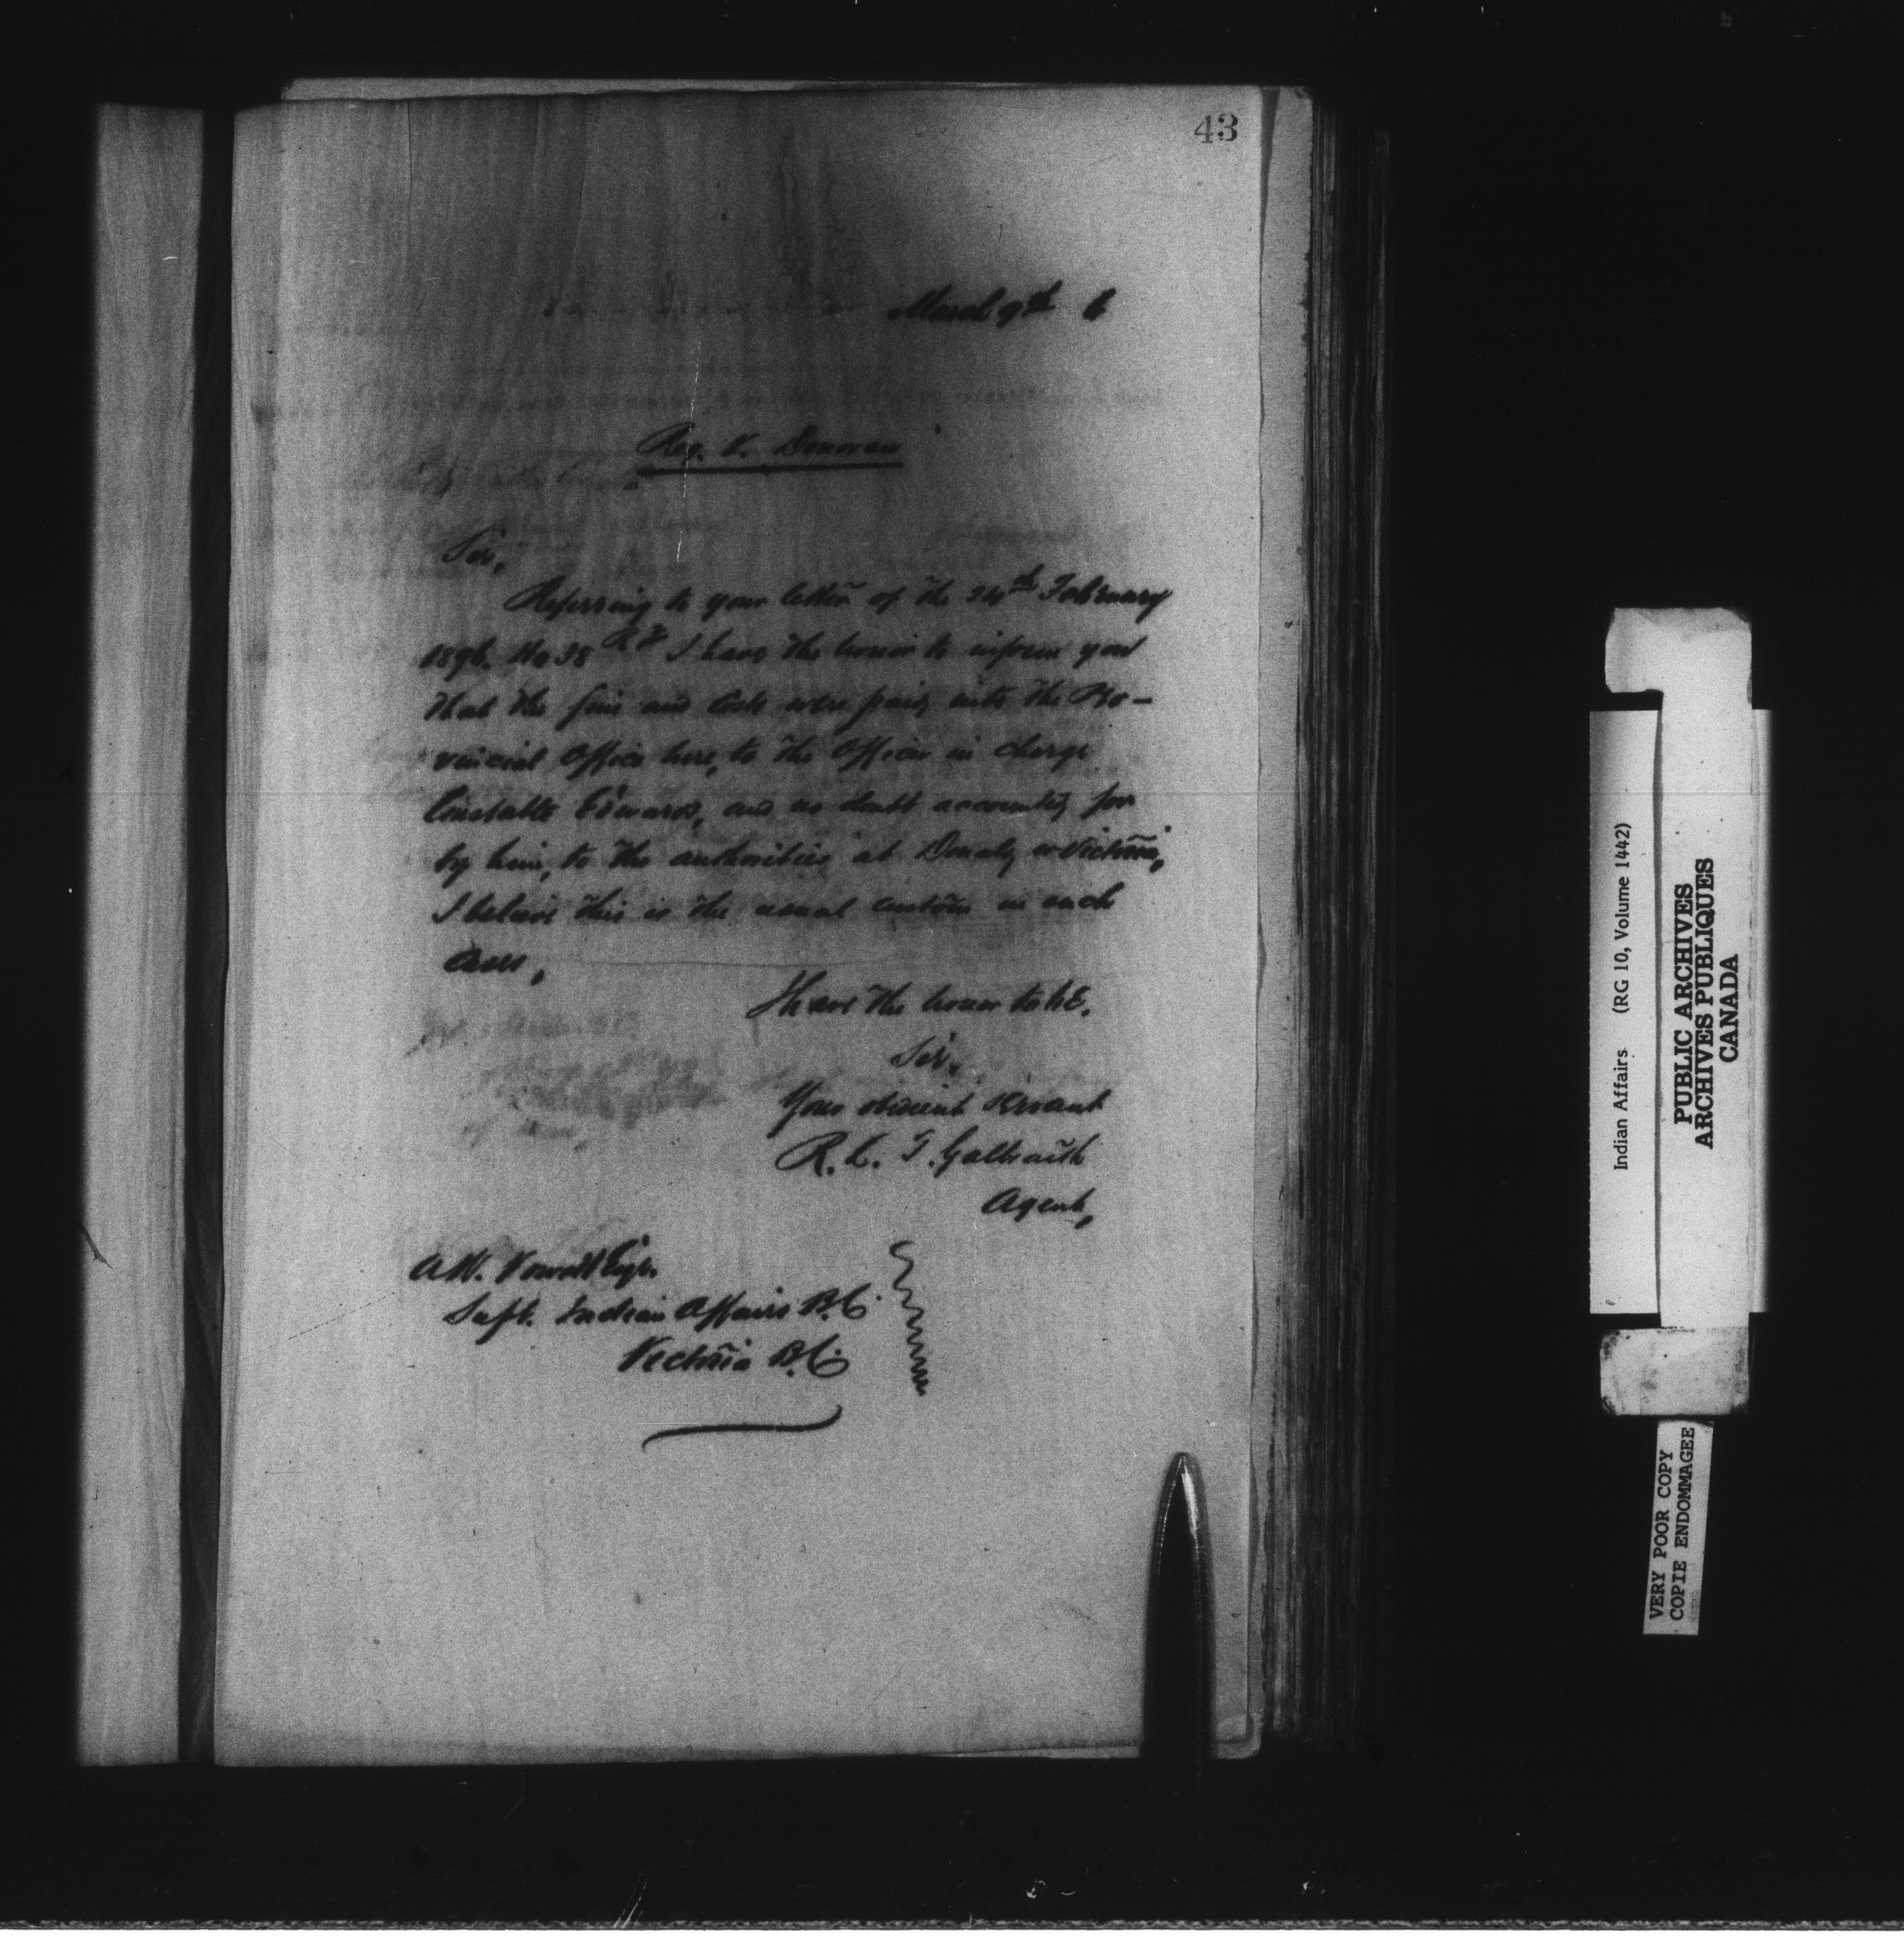 43
March 9th 6
Reg. V. Donovan
Sir,
Referring to your letter of the 24th February
1896. No 38 I have the honor to inform you
that the fine and Costs were paid into the Pro-
vincial Office here, to the Officer in charge
Constable Edwards, and no doubt accounted for
by him, to the authorities at Donald or Victoria,
I believe this is the usual custom in such
Cases,
I have the honor to be.
Sir,
Your obedient Servant
R. L. T. Galbraith
Agent,
A.W. Vowell Esqr.
Supt. Indian Affairs B.C.
Victoria B.C.
Indian Affairs (RG 10, Volume 1442)
PUBLIC ARCHIVES
ARCHIVES PUBLIQUES
CANADA
VERY POOR COPY
COPIE ENDOMMAGEE